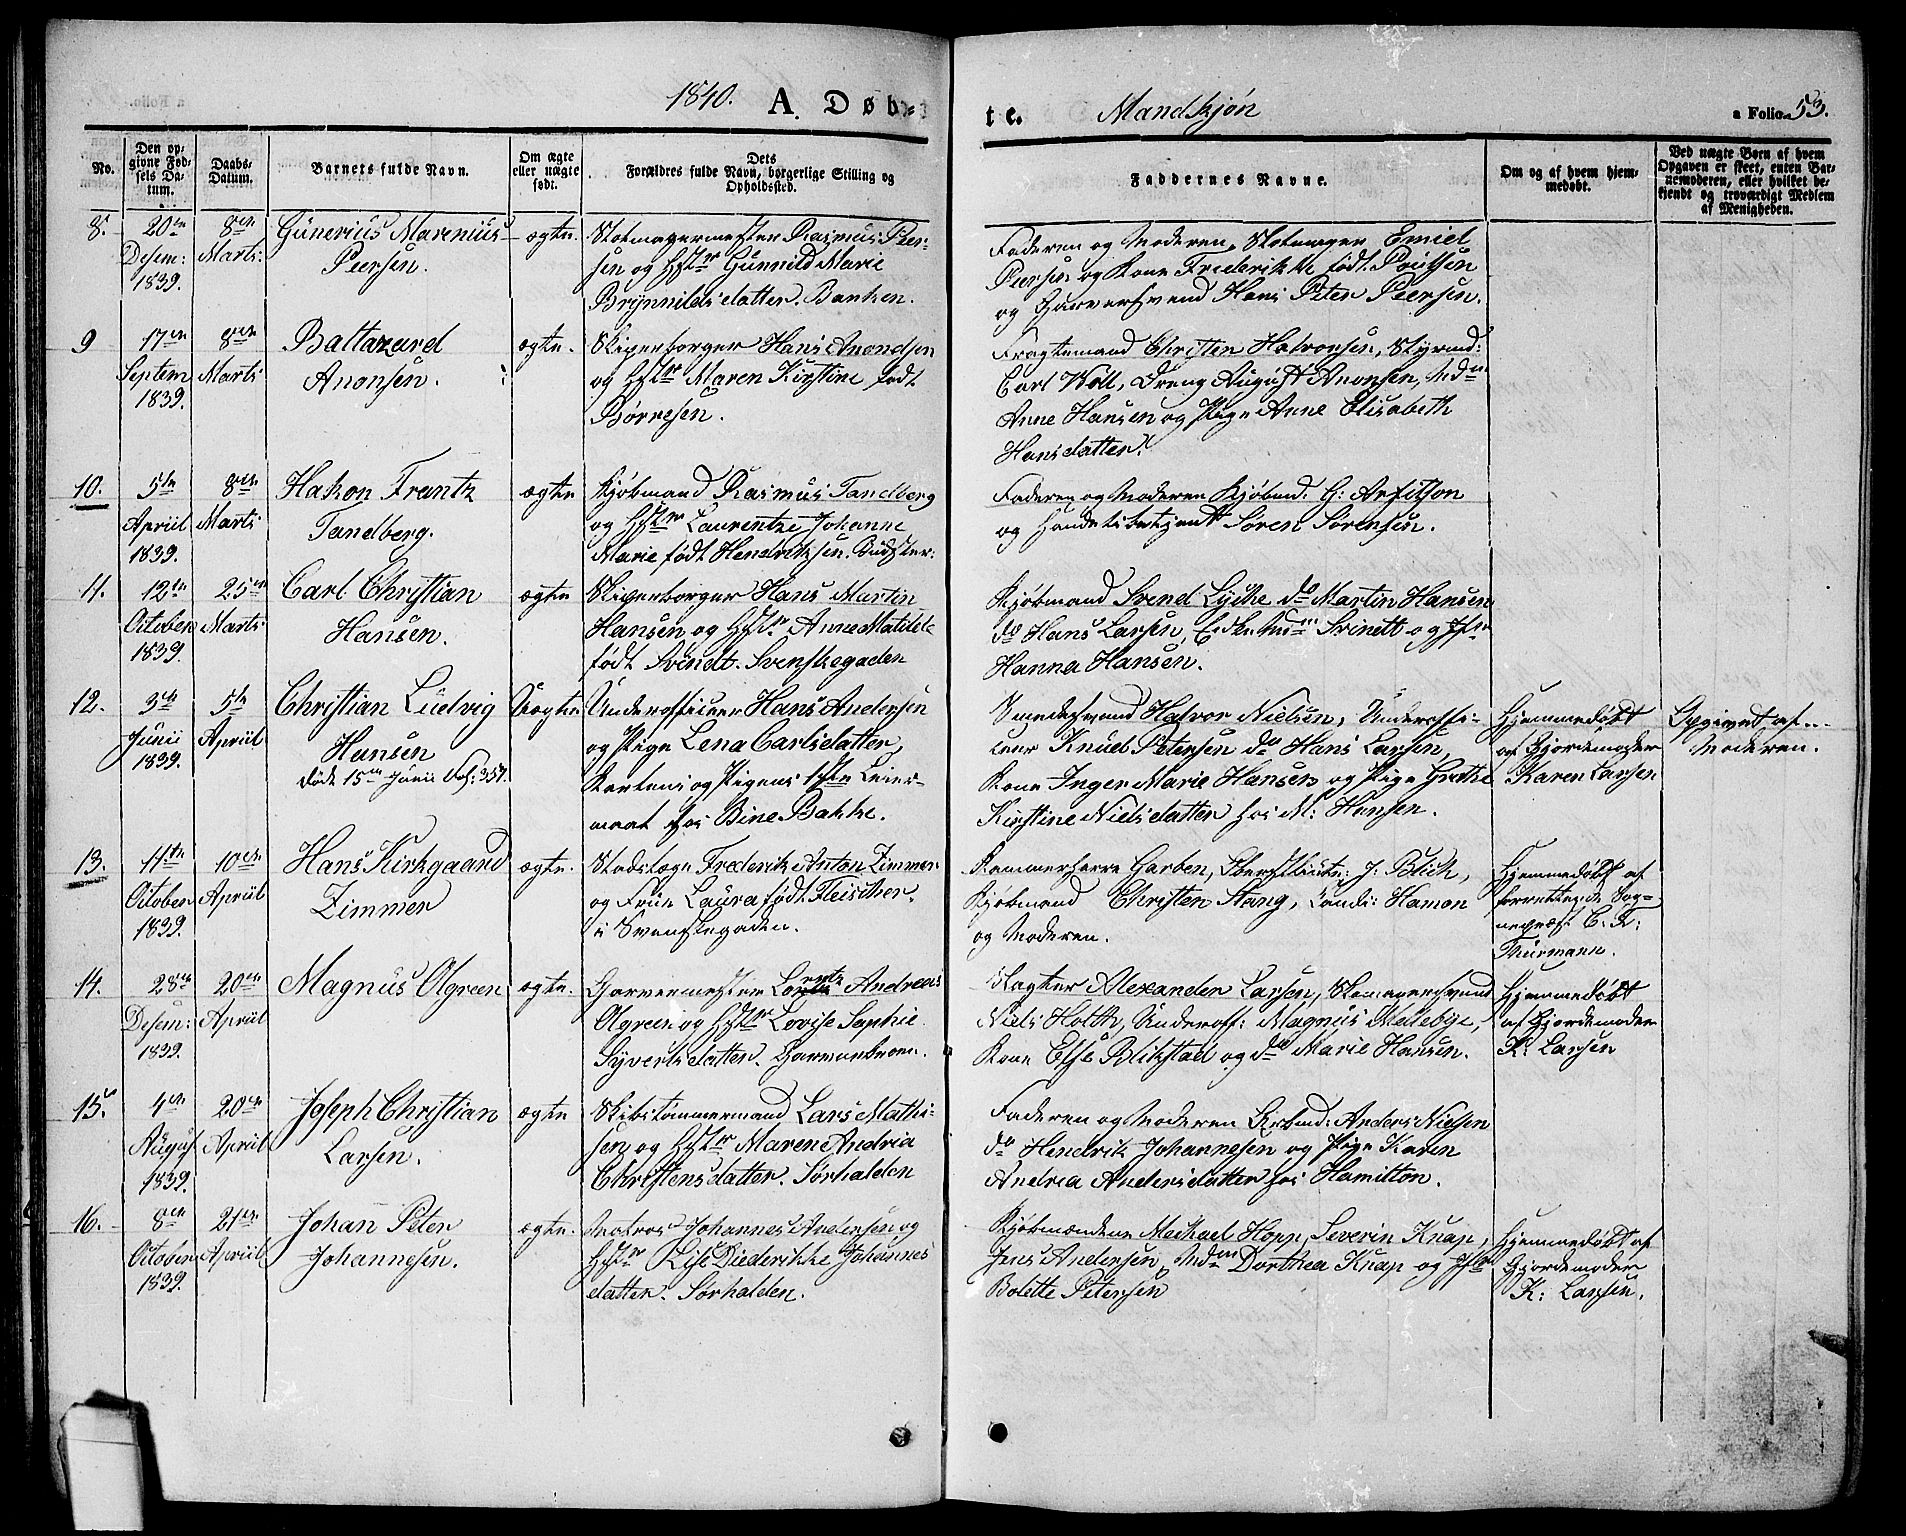 1840. A. Døb-
te. Mandkjøn
a Folio 53.
No.
Den op-
givne Fød-
sels Da-
tum.
Daabs-
Datum.
Barnets fulde Navn.
Om ægte
eller uægte
født.
Dets
Forældres fulde Navn, borgerlige Stilling og
Opholdssted.
Faddernes Navne.
Om og af hvem hjem-
medøbt.
Ved uægte Børn af hvem
Opgaven er skeet, enten Bar-
nemoderen, eller hvilket be-
kjendt og troværdigt Medlem
af Menigheden.
8.
20de
Desem:
1839.
8de
Marts:
Günerius Marenius
Peersen.
ægte.
Skomagermester Rasmus Peer-
sen og Hstr Gunnild Marie
Brynnildsdatter. Banken.
Faderen og Moderen, Skomager Emiel
Peersen og Kone Frederikke født Poulsen
og Garversvend Hans Peter Peersen.
9
17de
Septem
1839.
8de
Marts
Baltazard
Anonsen.
ægte.
Skiperborger Hans Anondsen
og Hstr Maren Kirstine født
Børresen.
Fragtemand Christen Halvorsen, Styrmd:
Carl Woll, Dreng August Anonsen, Mdm
Anne Hansen og Pige Anne Elisabeth
Hansdatter.
10.
5te
Apriil
1839.
8de
Marts
Hakon Frantz
Tandberg.
ægte
Kjøbmand Rasmus Tandberg
og Hstr Laurentze Johanne
Marie født Hendriksen.
Faderen og Moderen Kjøbmd. G: Arfitson
og Handelsbetjent Søren Sørensen.
11.
12te
October
1839.
25de
Marts
Carl Christian
Hansen.
ægte
Skiperborger Hans Martin
Hansen og Hstr Anne Matilde
født Svindt. Svenskegaden
Kjøbmand Svend Lyche do Martin Hansen
do Hans Larsen, Enkemdm Svinett og Jfr
Hanna Hansen.
12.
3de
Junii
1839.
5te
Apriil
Christian Ludvig
Hansen
døde 15de Junii Fol: 357.
Uægte
Underofficeer Hans Andersen
og Pige Lena Carlsdatter,
Karlens og Pigens 1ste Leier-
maal hos Bine Bakke.
Smedesvend Halvor Nielsen, Underoffi-
ceer Knud Petersen do Hans Larsen,
Kone Inger Marie Hansen og Pige Grethe
Kirstine Nielsdatter hos M: Hansen.
Hjemmedøbt
af Gjordemoder
Karen Larsen
Opgivet af
Moderen.
13.
11te
October
1839.
10de
Apriil
Hans Kirkgaard
Zimmer
ægte.
Stadslæge Frederik Anton Zimmer
og Frue Laura født Fleischer.
i Svenskegaden.
Kammerherre Garben, Oberstlieutn: J. Blich,
Kjøbmand Christen Stang, Candi: Hamon
og Moderen.
Hjemmedøbt af
forrettende Sog-
nepræst C. F:
Thurmann.
14.
28de
Desem:
1839.
20de
Apriil
Magnus Olgreen
ægte.
Garvermester Lorentz Andreas
Olgreen og Hstr Lovise Sophie
Syvertsdatter.
Slagter Alexander Larsen, Skomagersvend
Niels Holth, Underoff: Magnus Mellebye,
Kone Else Blikstad og do Marie Hansen.
Hjemmedøbt
af Gjordemoder
K: Larsen
15.
4de
August
1839.
20de
Apriil
Joseph Christian
Larsen.
ægte
Skibstømmermand Lars Mathi-
sen og Hstr Maren Andria
Christensdatter. Sørhalden
Faderen og Moderen Anders Nielsen
do Hendrik Johannesen og Pige Karen
Andrea Andersdatter hos Hamilton.
16.
8de
October
1839.
21de
Apriil
Johan Peter
Johannesen.
ægte.
Matros Johannes Andersen og
Hstr Lise Diederikke Johannes
datter. Sørhalden.
Kjøbmændene Mechael Hopp, Severin Knap,
Jens Andersen, Mdm Dorthea Knap og Jfr
Bolette Petersen
Hjemmedøbt af
Gjordemoder
K: Larsen.